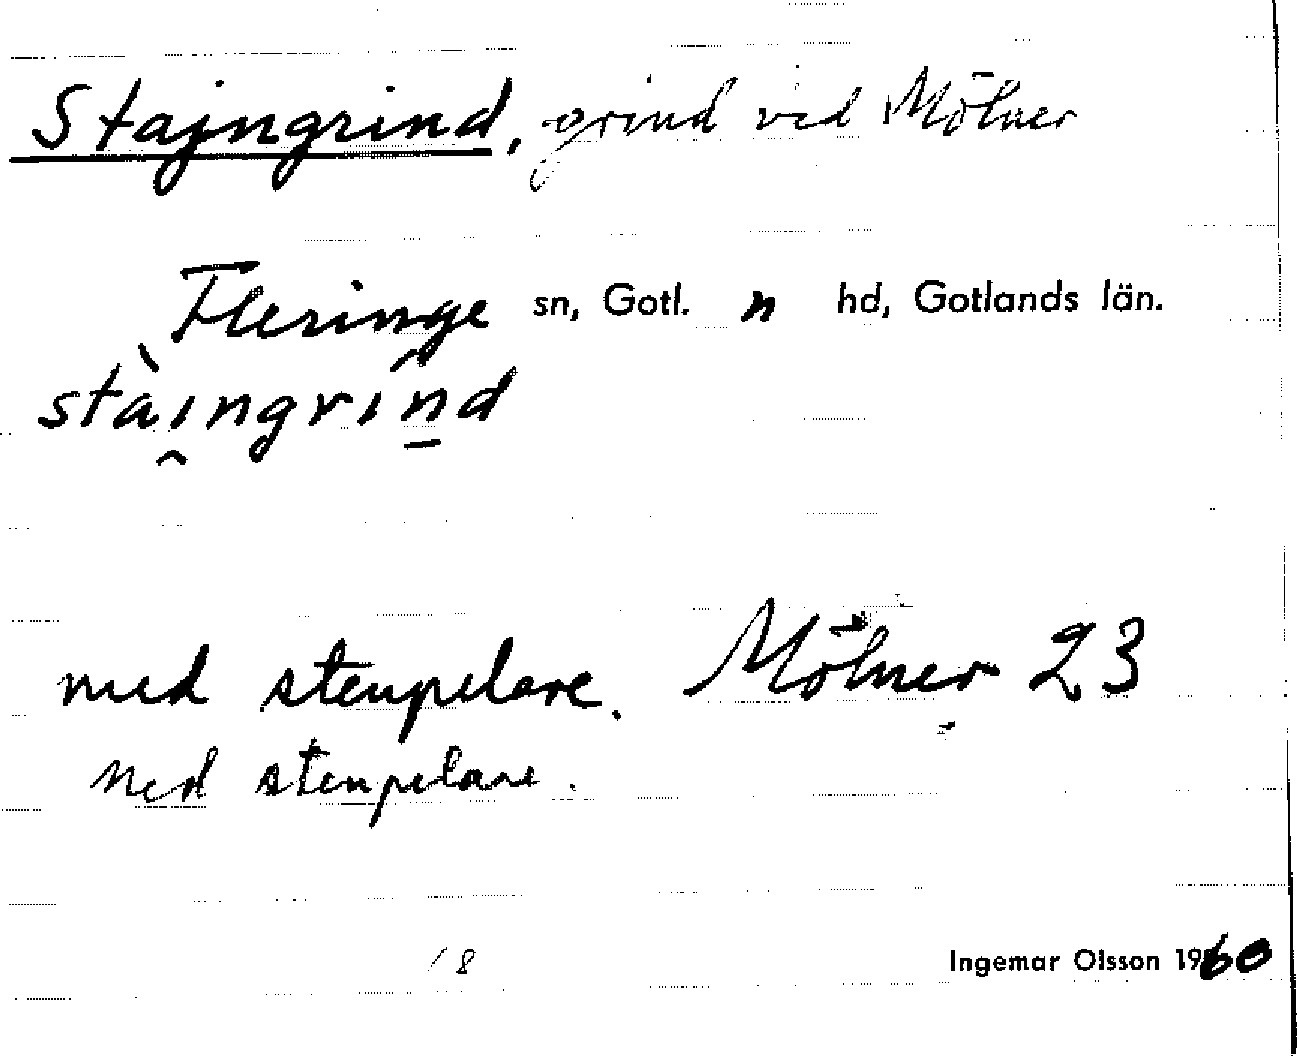 Stajngrind, grind vid Mölner
Fleringe sn, Gotl. n hd, Gotlands län.
stàı̯ngrın̲d
med stenpelare. Mölner 23
Med stenpelare.
18
Ingemar Olsson 1960